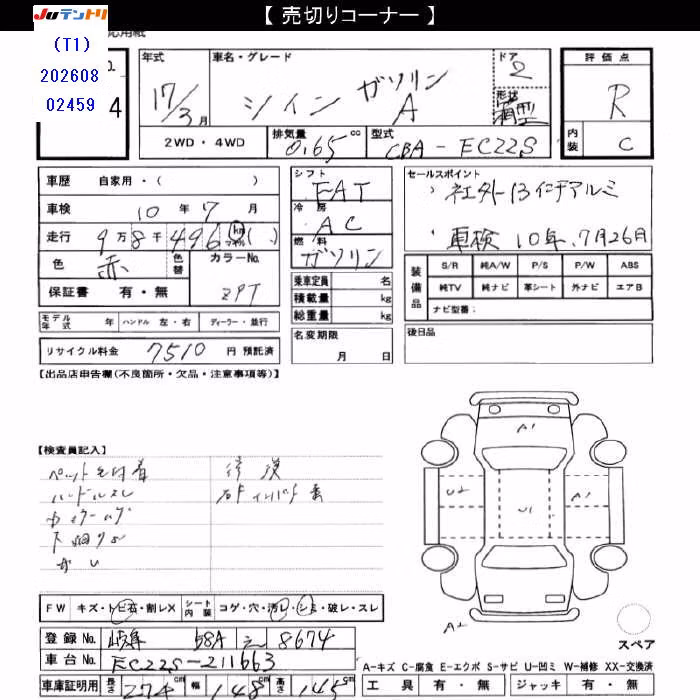 JUテントリ
【 売切りコーナー 】
応用紙
(T1)
202608
02459
4
年式
17/3 月
車名・グレード
ツイン ガソリンA
ドア
2
形状
箱型
評価点
R
内装
C
2WD ・ 4WD
排気量
0.65 cc
型式
CBA-EC22S
車歴 自家用・( )
車検 10年 7月
走行 9万8千496 km マイル ( )
色 赤
色替
カラーNo.
ZPT
保証書 有・無
シフト
FAT
冷房
AC
燃料
ガソリン
乗車定員 名
積載量 kg
総重量 kg
セールスポイント
・社外13インチアルミ
・車検 10年.7月26日
装備品
S/R 純A/W P/S P/W ABS
純TV 純ナビ 革シート 外ナビ エアB
ナビ型番:
モデル年式 年 ハンドル 左・右 ディーラー・並行
名変期限
月 日
後日品
リサイクル料金 7510 円 預託済
【出品店申告欄(不良箇所・欠品・注意事項等)】
【検査員記入】
ハンドルスレ
下廻りS
修復
A1
U2
U1
A1
A2
FW キズ・トビ石・割レX
シート内装 コゲ・穴・汚レ・シミ・破レ・スレ
登録No. 岐阜 58A え 8674
車台No. EC22S-211663
車庫証明用 長さ 274 cm 幅 148 cm 高さ 145 cm
スペア
A-キズ C-腐食 E-エクボ S-サビ U-凹ミ W-補修 XX-交換済
工具 有・無 ジャッキ 有・無